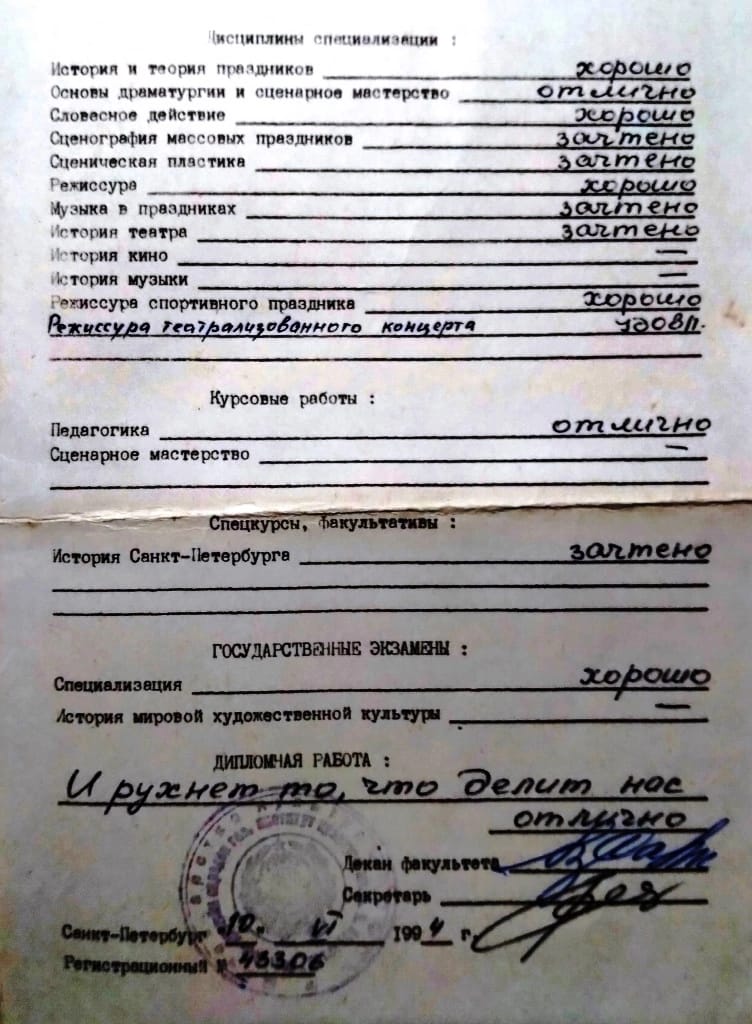 Дисциплины специализации :
История и теория праздников хорошо
Основы драматургии и сценарное мастерство отлично
Словесное действие хорошо
Сценография массовых праздников зачтено
Сценическая пластика зачтено
Режиссура хорошо
Музыка в праздниках зачтено
История театра зачтено
История кино —
История музыки —
Режиссура спортивного праздника хорошо
Режиссура театрализованного концерта удовл.
Курсовые работы :
Педагогика отлично
Сценарное мастерство —
Спецкурсы, факультативы :
История Санкт-Петербурга зачтено
ГОСУДАРСТВЕННЫЕ ЭКЗАМЕНЫ :
Специализация хорошо
История мировой художественной культуры —
ДИПЛОМНАЯ РАБОТА :
И рухнет то, что делит нас
отлично
Декан факультета
Секретарь
Санкт-Петербург "10" VI 1994 г.
Регистрационный № 43306